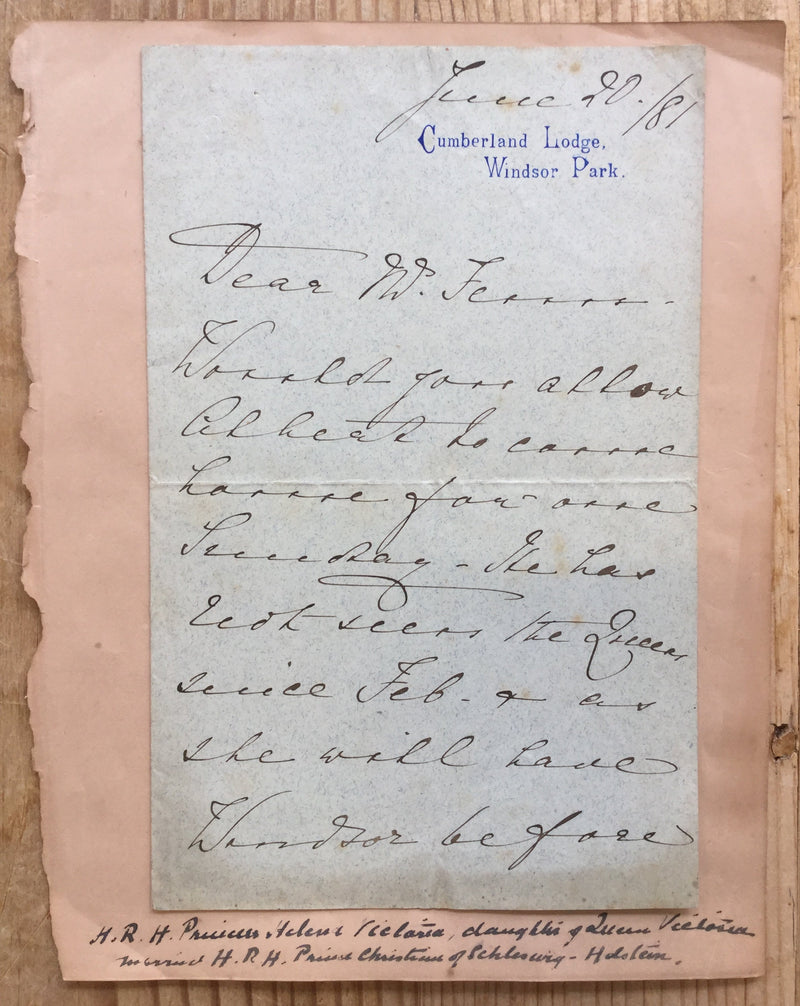 June 20./81
Cumberland Lodge,
Windsor Park.
Dear Mr.
Would you allow
Albert to come
home for one
Sunday - He has
not seen the Queen
since Feb. & as
she will have
Windsor before
H.R.H. Princess Helena Victoria, daughter of Queen Victoria
married H.R.H. Prince Christian of Schleswig-Holstein.